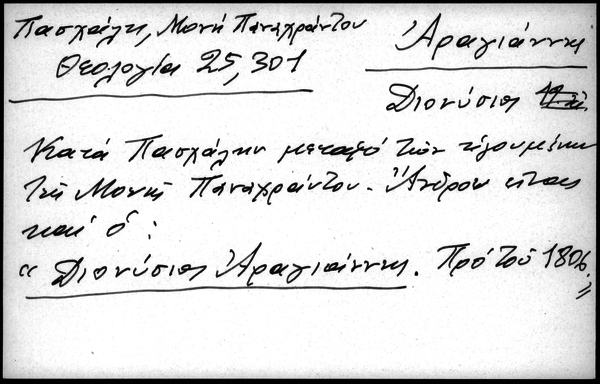 Πασχάλη, Μονή Παναχράντου
Θεολογία 25, 301
Ἀραγιάννης
Διονύσιος
Κατά Πασχάλην μεταξύ τῶν ἡγουμένων
τῆς Μονῆς Παναχράντου - Ἄνδρου εἶναι
καί ὁ :
“ Διονύσιος Ἀραγιάννης. Πρό τοῦ 1806 „